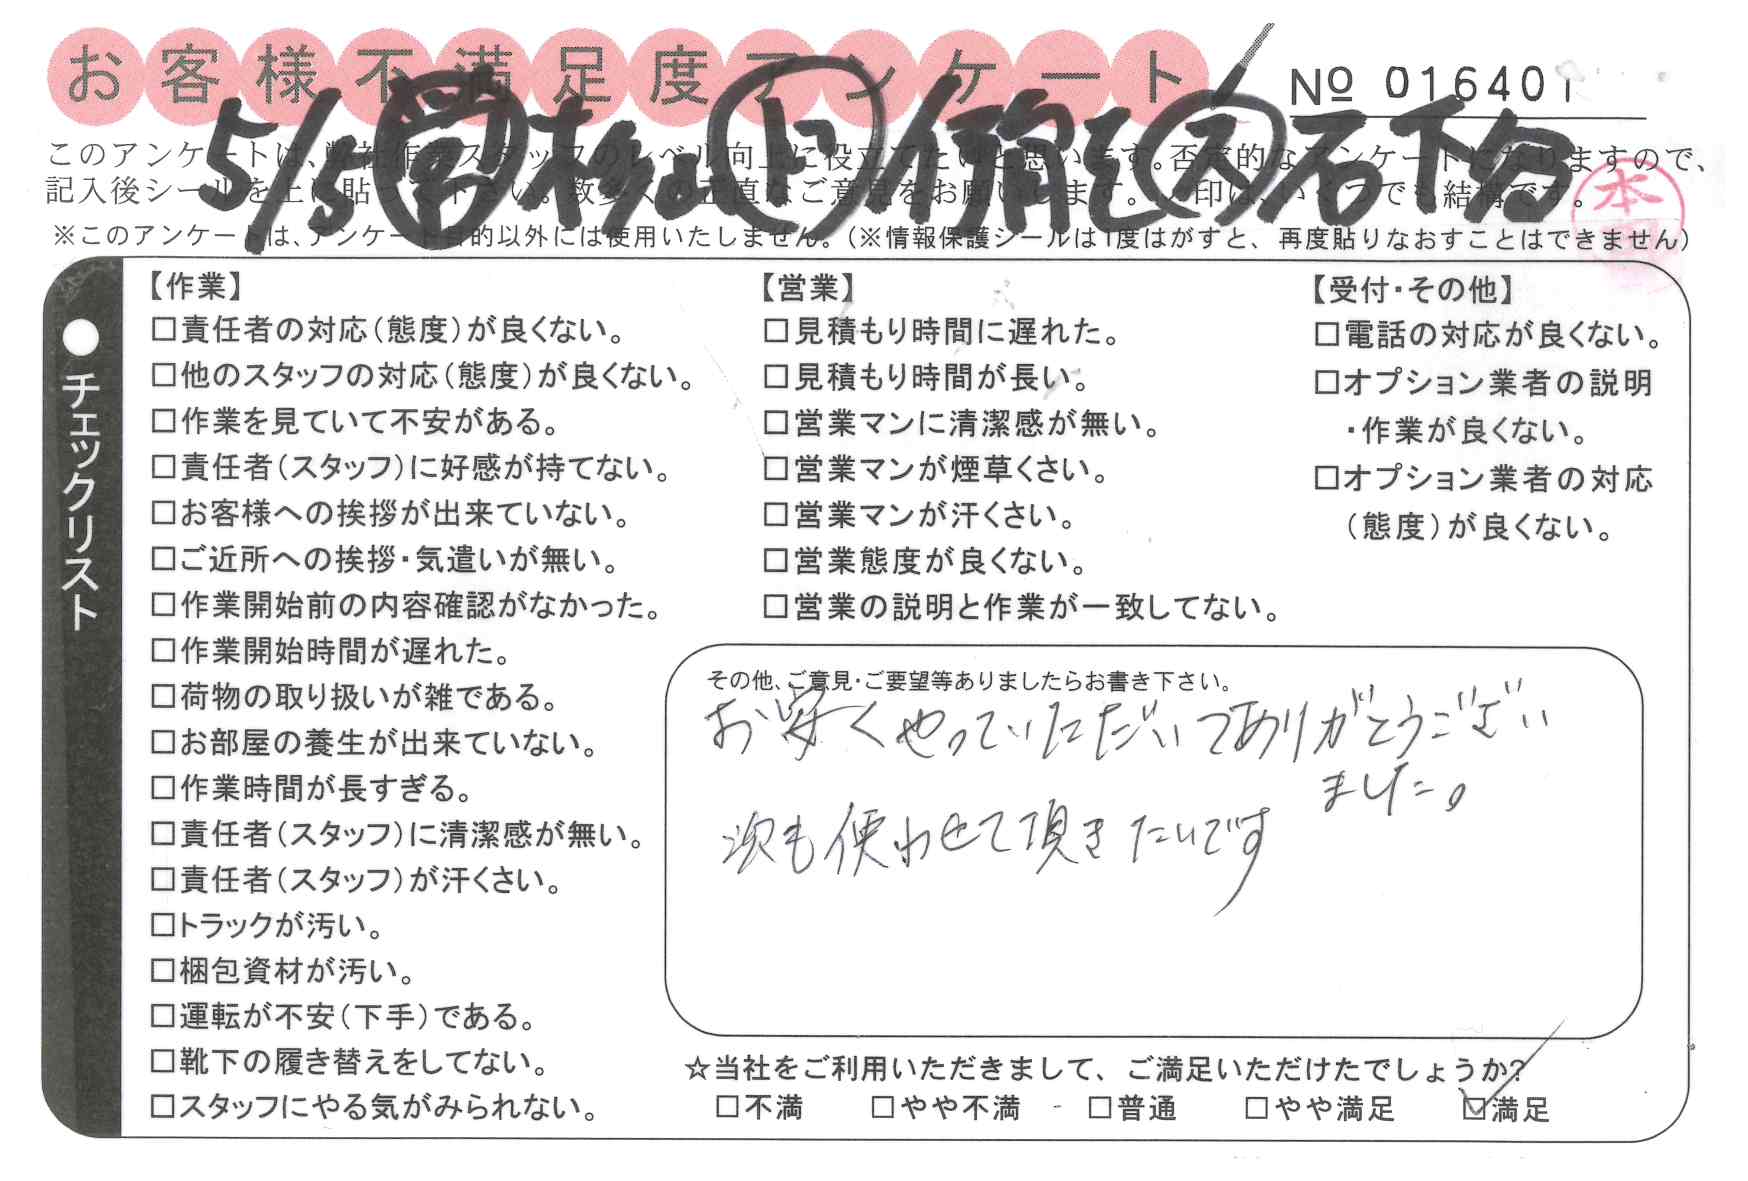 お客様不満足度アンケート
No 016401
5/5 営 杉山 上 伊龍 大 石下谷
このアンケートは、弊社作業スタッフのレベル向上に役立てたいと思います。否定的なアンケートになりますので、
記入後シールを上に貼って下さい。数多くの正直なご意見をお願いします。✓印は、いくつでも結構です。
本
※このアンケートは、アンケート目的以外には使用いたしません。(※情報保護シールは1度はがすと、再度貼りなおすことはできません)
●チェックリスト
【作業】
□責任者の対応(態度)が良くない。
□他のスタッフの対応(態度)が良くない。
□作業を見ていて不安がある。
□責任者(スタッフ)に好感が持てない。
□お客様への挨拶が出来ていない。
□ご近所への挨拶・気遣いが無い。
□作業開始前の内容確認がなかった。
□作業開始時間が遅れた。
□荷物の取り扱いが雑である。
□お部屋の養生が出来ていない。
□作業時間が長すぎる。
□責任者(スタッフ)に清潔感が無い。
□責任者(スタッフ)が汗くさい。
□トラックが汚い。
□梱包資材が汚い。
□運転が不安(下手)である。
□靴下の履き替えをしてない。
□スタッフにやる気がみられない。
【営業】
□見積もり時間に遅れた。
□見積もり時間が長い。
□営業マンに清潔感が無い。
□営業マンが煙草くさい。
□営業マンが汗くさい。
□営業態度が良くない。
□営業の説明と作業が一致してない。
【受付・その他】
□電話の対応が良くない。
□オプション業者の説明
・作業が良くない。
□オプション業者の対応
(態度)が良くない。
その他、ご意見・ご要望等ありましたらお書き下さい。
お安くやっていただいてありがとうござい
ました。
次も使わせて頂きたいです
☆当社をご利用いただきまして、ご満足いただけたでしょうか?
□不満 □やや不満 □普通 □やや満足 ☑満足